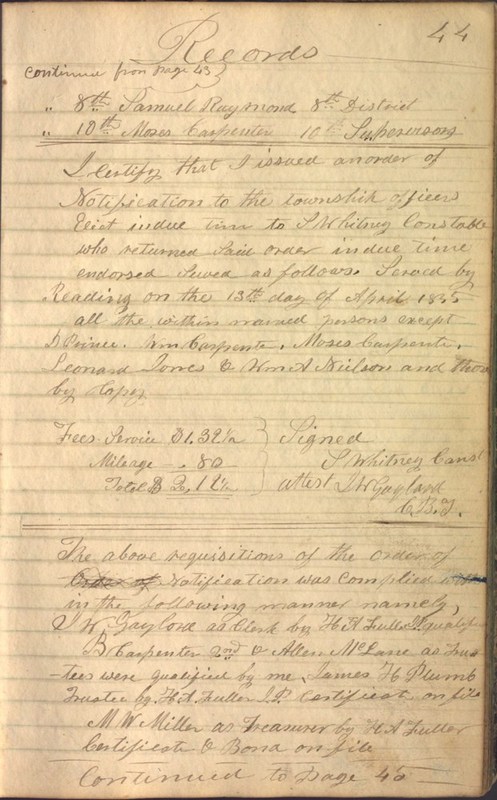 44
Records
Continued from Page 43}
" 8th Samuel Raymond 8th District
" 10th Moses Carpenter 10th Supervisors
I Certify that I issued an order of
Notification to the township officers
Elect in due time to S Whitney Constable
who returned said order in due time
endorsed Served as follows. Served by
Reading on the 13th day of April 1855
all the within named persons except
Wm Carpente. Moses Carpente.
Leonard Jones & Wm A Neilson and
by Copy
Fees Service $1,32½ } Signed
Mileage - . 80 } S Whitney Const
Total $ 2,12½ } attest J W Gaylord
C. B. T.
The above requisitions of the order of
Order of Notification was complied with
in the following manner namely,
J W Gaylord as Clerk by H A Fuller J.P. qualified
B Carpenter 2nd & Allen McLane as Trus
-tees were qualified by me James H Plumb
Trustee by H A Fuller J.P. Certificate on file
M. W. Miller as Treasurer by H A Fuller
Certificate & Bond on file
Continued to Page 45